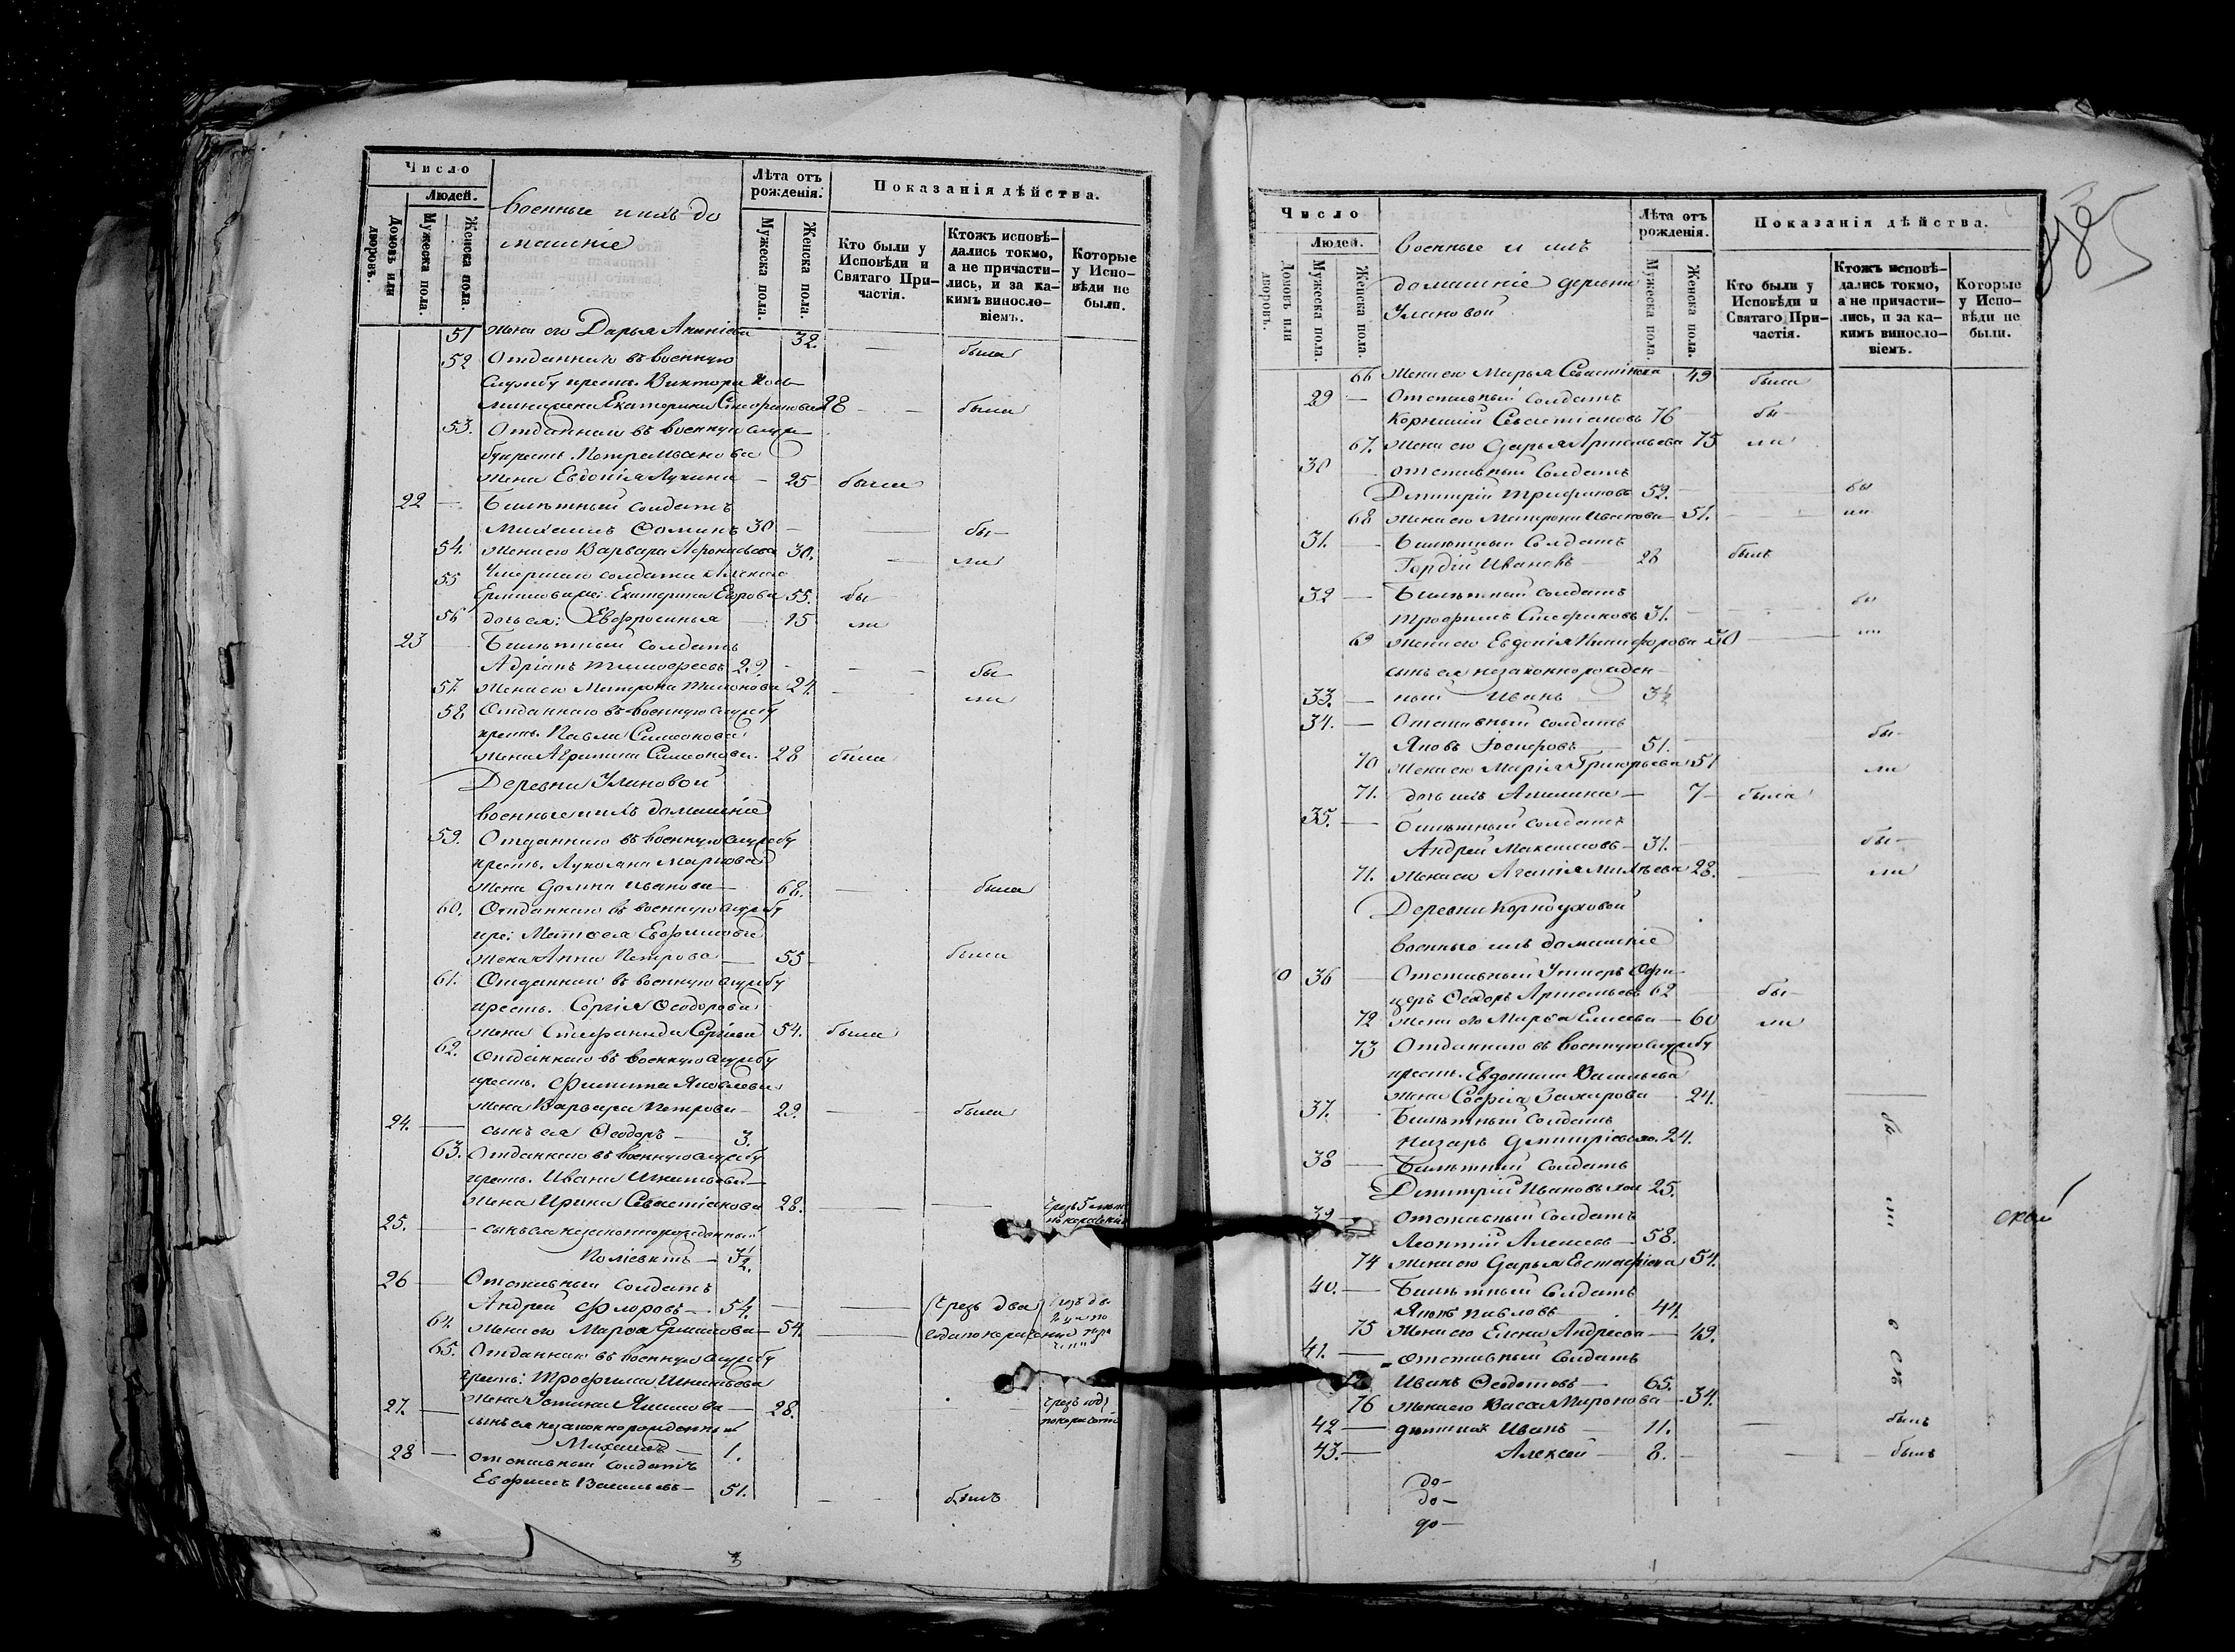 Число
Людей.
Домовъ или дворовъ.
Мужеска пола.
Женска пола.
Военные и ихъ до
машніе
Лѣта отъ рожденія.
Мужеска пола.
Женска пола.
Показанія дѣйства.
Кто были у Исповѣди и Святаго Причастія.
Ктожъ исповѣдались токмо, а не причастились, и за какимъ винословіемъ.
Которые у Исповѣди не были.
51 жена его Дарья 32. была
52 Отданнаго въ военную
службу крест. Виктора
Екатерина 28 была
53. Отданнаго въ военную служ
бу крест. Петра Иванова
жена Евдокія Лукина 25 была
22 Билетный солдатъ
Михаилъ Фоминъ 30 бы
54. жена его Варвара 30. ли
55 Умершаго солдата
Екатерина Егорова 55. бы
56 дочь ея: Евфросинья 15 ли
23 Билетный солдатъ
Адріанъ Тимофеевъ 29. бы
57. Жена его Матрона Тихонова 24. ли
58 Отданнаго въ военную службу
крест. Павла Симеонова
жена Агрипина Симеонова. 28 была
Деревни Улановой
военные и ихъ домашніе
59. Отданнаго въ военную службу
крест. Лукояна Маркова
жена Домна Иванова 68. была
60. Отданнаго въ военную службу
кре: Матфея Евфимова
жена Анна Петрова 55 была
61. Отданнаго въ военную службу
крест. Сергія Феодорова
жена Стефанида Сергіева 54. была
62. Отданнаго въ военную службу
крест. Филипа Яковлева
жена Варвара Петрова 29. была
24. сынъ ея Феодоръ 3.
63. Отданнаго въ военную службу
крест. Ивана Игнатьева
жена Ирина Севастіанова 28.
25. сынъ ея незаконнорожденный
Поліевктъ 3½.
26 Отставный солдатъ
Андрей Флоровъ 54. Чрезъ два
64. жена его Марфа Ермилова 54. года по
65. Отданнаго въ военную службу
крест: Трофима Игнатьева
жена Устина Якимова 28. Чрезъ годъ
27. сынъ ея незаконнорожденный
Михаилъ 1.
28 отставный солдатъ
Евфимъ Васильевъ 51. былъ
3
Число
Людей.
Домовъ или дворовъ.
Мужеска пола.
Женска пола.
Военные и ихъ
домашніе деревни
Улановой
Лѣта отъ рожденія.
Мужеска пола.
Женска пола.
Показанія дѣйства.
Кто были у Исповѣди и Святаго Причастія.
Ктожъ исповѣдались токмо, а не причастились, и за какимъ винословіемъ.
Которые у Исповѣди не были.
66 жена его Марья 49 была
29 Отставный солдатъ
Корнилій Севастіановъ 76 бы
67. жена его Дарья Артемьева 75 ли
30 отставный солдатъ
Дмитрій Трифоновъ 52. бы
68 жена его Матрона Иванова 51. ли
31. Билетный солдатъ
Гордій Ивановъ 28 былъ
32 Билетный солдатъ
Трофимъ Стефановъ 31. бы
69 жена его Евдокія Никифорова 30 ли
сынъ ея незаконнорожден
33. ный Иванъ 3½
34. Отставный солдатъ
Яковъ Іосифовъ 51. бы
70 жена его Марія Григорьева 51 ли
71. дочь ихъ Акилина 7 была
35. Билетный солдатъ
Андрей Максимовъ 31. бы
71. жена его Агапія Михѣева 28. ли
Деревни Корноуховой
военные ихъ домашніе
10 36 Отставный Унтеръ Офи
церъ Феодоръ Артемьевъ 62 бы
72 жена его Марфа Елисева 60 ли
73 Отданнаго въ военную службу
крест. Евдокима Васильева
жена Софія Захарова 24.
37. Билетный солдатъ
Назаръ Дмитріевъ 24. бы
38 Билетный солдатъ
Дмитрій Ивановъ 25.
39 отставный солдатъ ли
Леонтій Алексеевъ 58.
74 жена его Дарья Евстафіева 54.
40. Билетный солдатъ
Яковъ Павловъ 44.
75 жена его Елена Андреева 49.
41. отставный солдатъ
Иванъ Феодотовъ 65.
76 жена его Васса Миронова 34.
42 Иванъ 11. былъ
43. Алексей 8. былъ
до
до
до